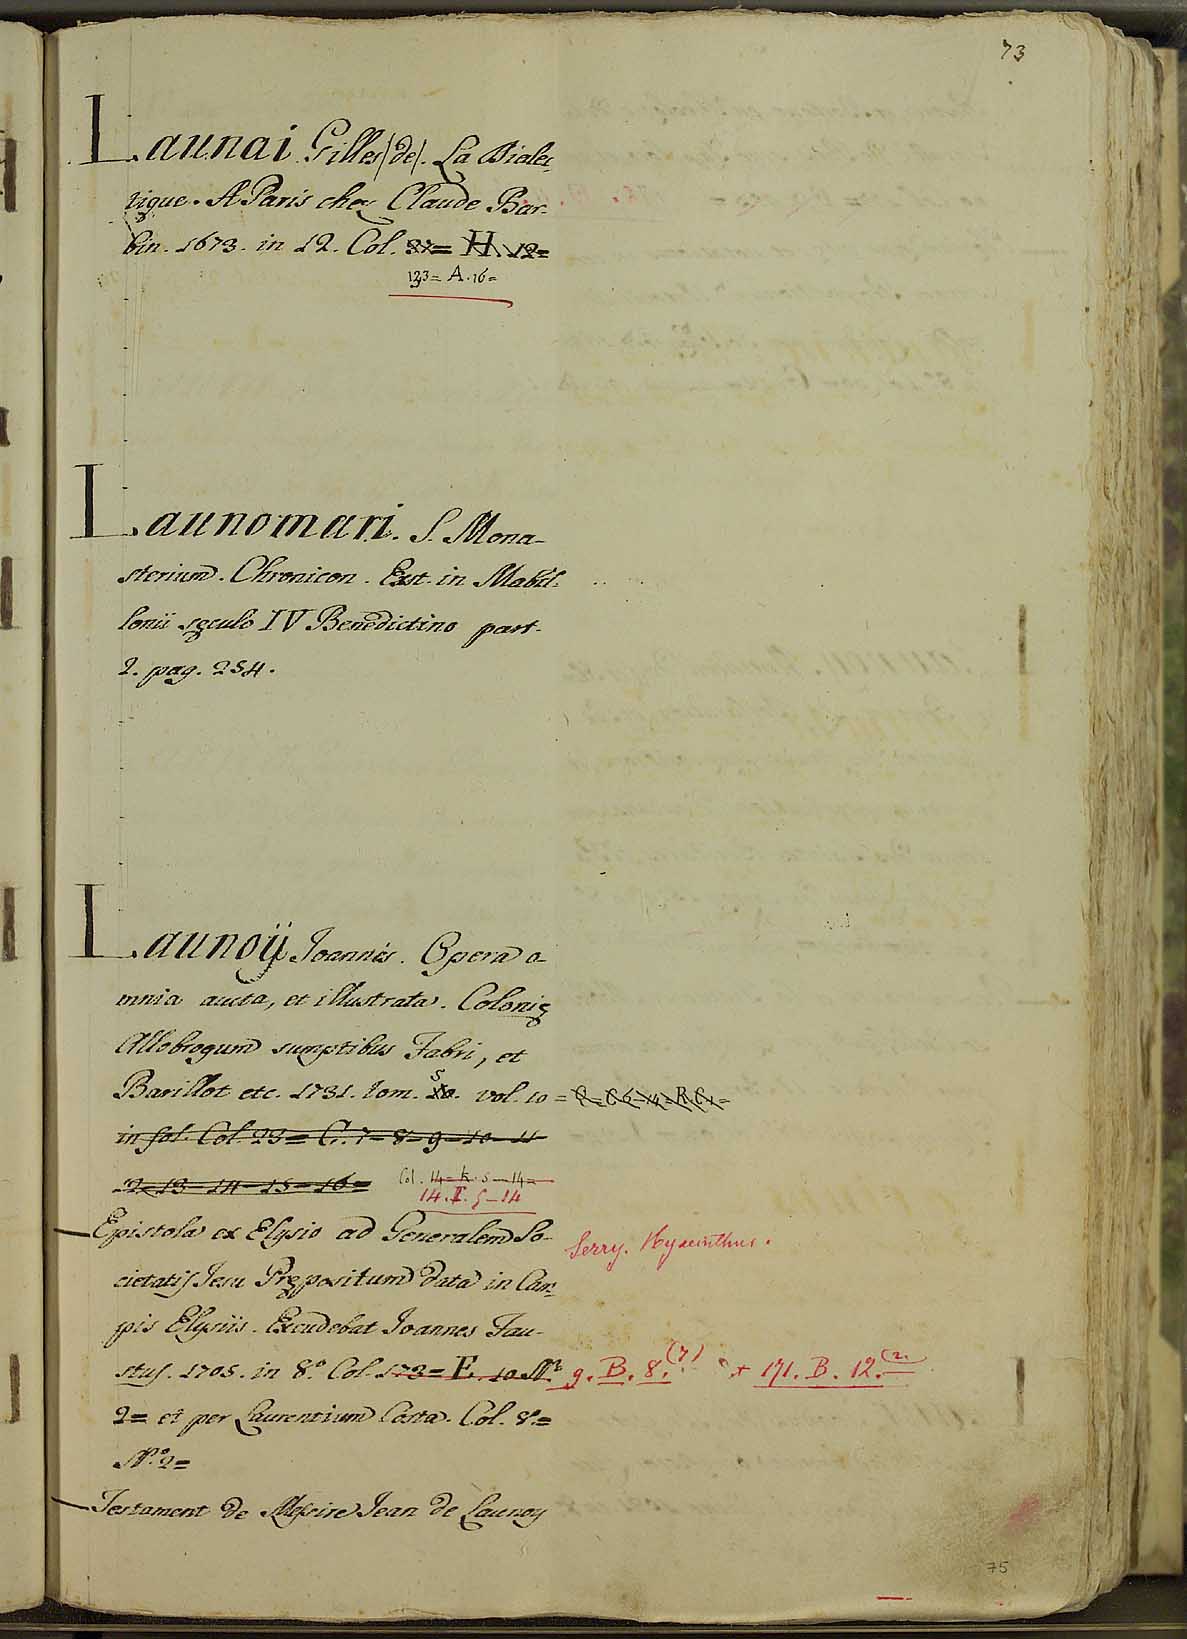 73
Launai Gilles (de). La Dialec-
tique. A Paris chez Claude Bar-
bin. 1673. in 12. Col. 37= H. 12=
123= A. 16=
Launomari. S. Mona-
sterium. Chronicon. Exst. in Mabil-
lonii sęculo IV Benedictino part.
2. pag. 254.
Launoij Joannis. Opera o-
mnia aucta, et illustrata. Colonię
Allobrogum sumptibus Fabri, et
Barillot etc. 1731. tom. 5 10. vol. 10=
in fol. Col. 23= C. 7-8-9-10-11
12-13-14-15-16=
Col. 14= k. 5-14=
14. I. 5-14
Epistola ex Elysio ad Generalem So-
cietatis Jesu Prępositum data in Cam-
pis Elysiis. Excudebat Joannes Fau-
stus. 1705. in 8.º Col. 173= F. 10. Nº
2= et per Laurentium Costa. Col. 8.=
Nº. 2=
Serry. Hyacinthus.
9. B. 8. (7) + 171. B. 12. (2.
Testament de Messire Jean de Launoy
75